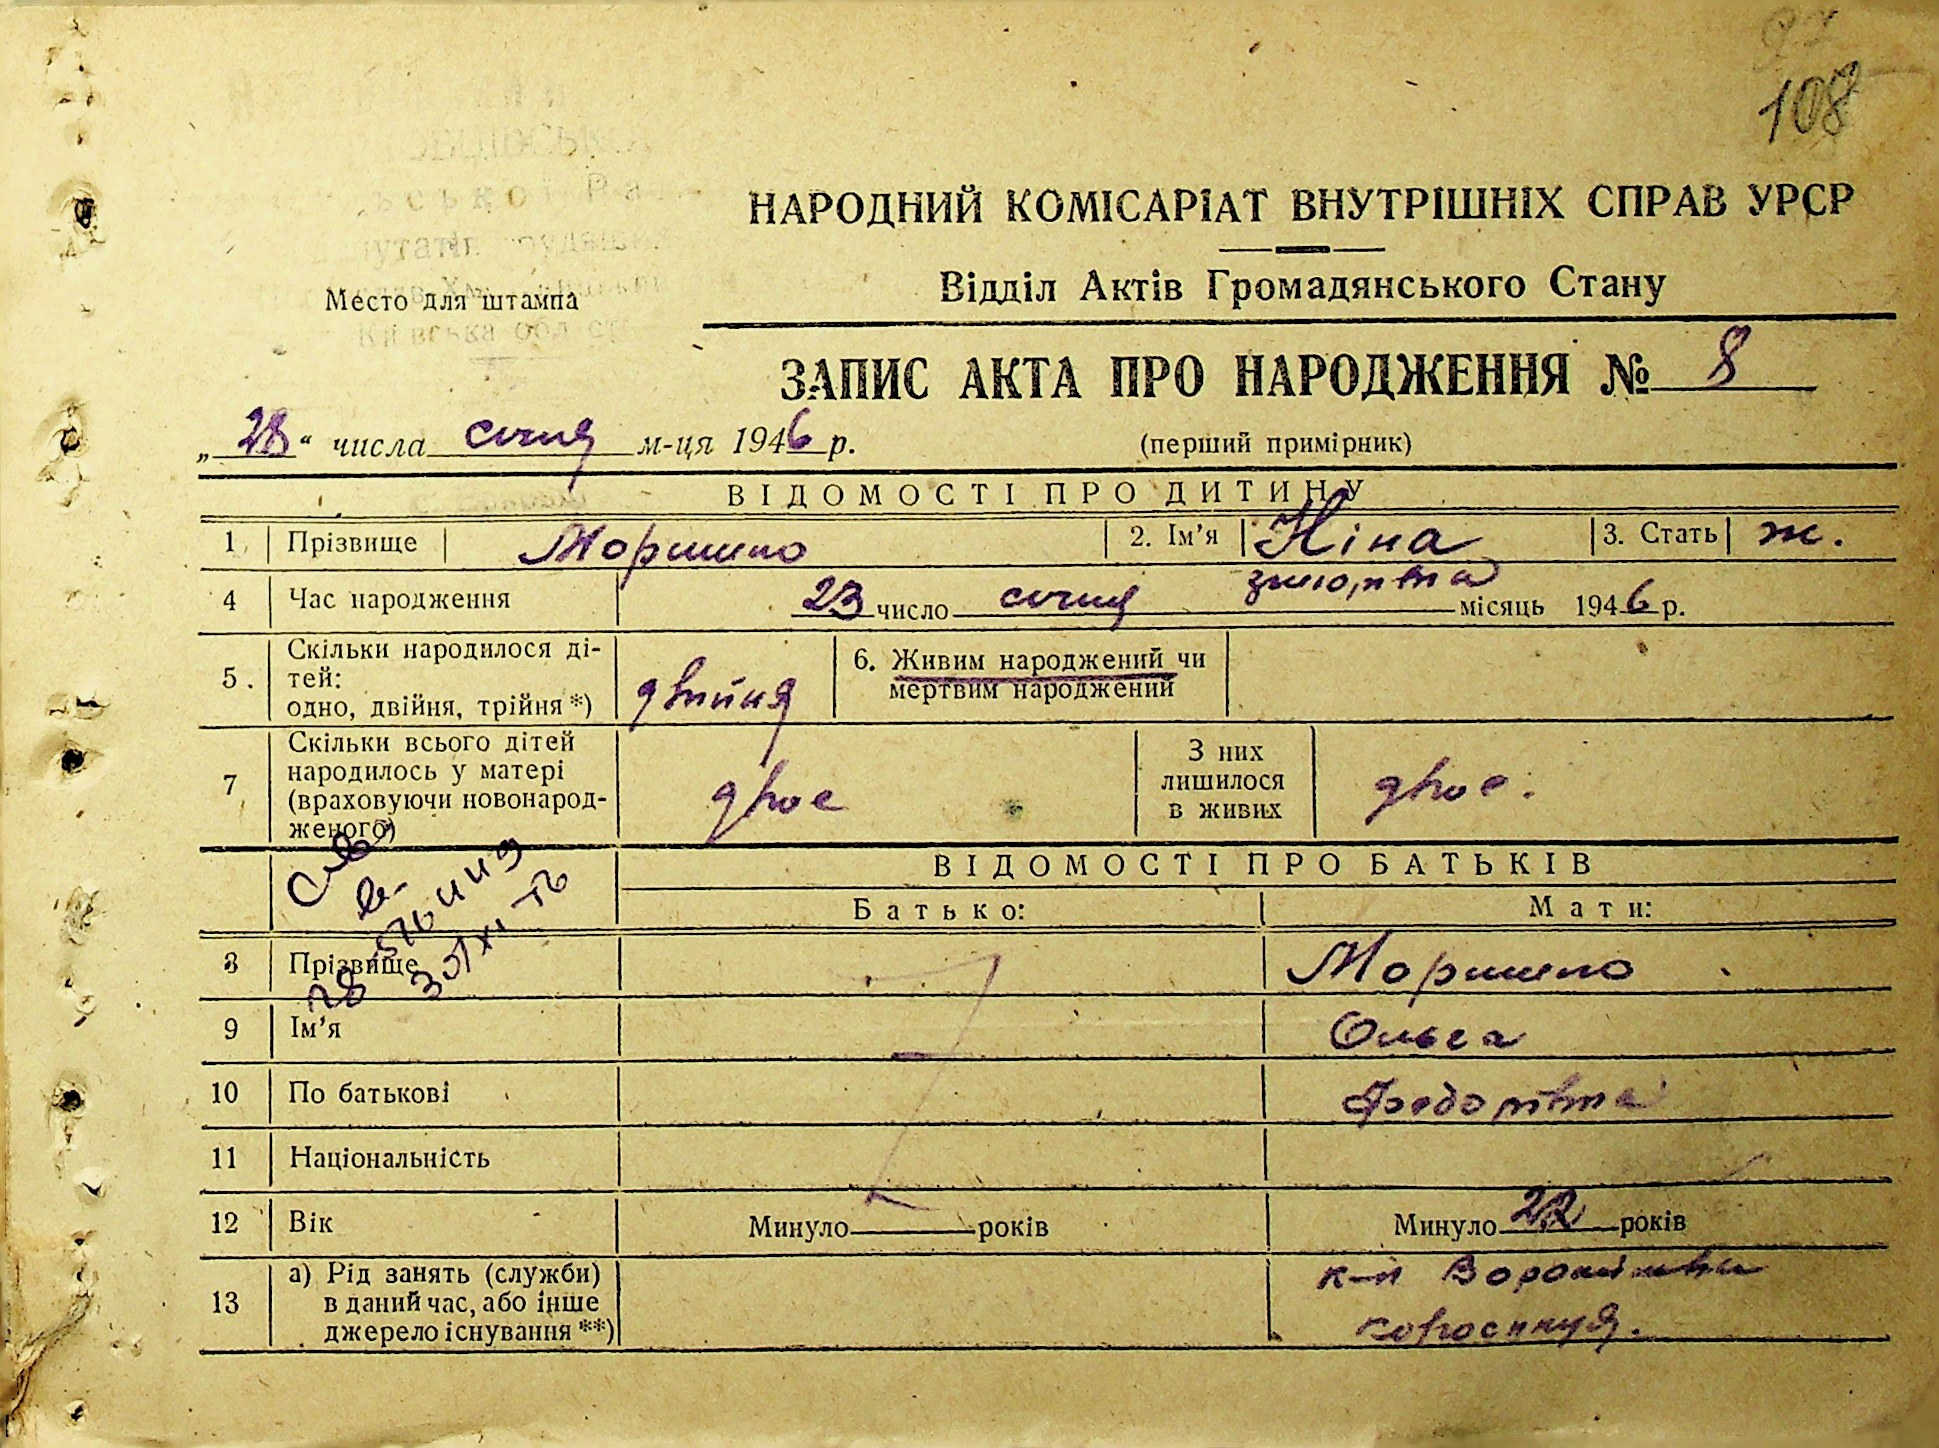 108
НАРОДНИЙ КОМІСАРІАТ ВНУТРІШНІХ СПРАВ УРСР
Відділ Актів Громадянського Стану
Место для штампа
Київська обл
ЗАПИС АКТА ПРО НАРОДЖЕННЯ № 8
„28“ числа січня м-ця 1946 р.
(перший примірник)
ВІДОМОСТІ ПРО ДИТИНУ
1 Прізвище 2. Ім'я Ніна 3. Стать ж.
4 Час народження 23 число січня місяць 1946 р.
5. Скільки народилося ді-
тей:
одно, двійня, трійня *) двійня
6. Живим народжений чи
мертвим народжений
7 Скільки всього дітей
народилось у матері
(враховуючи новонарод-
женого) двоє
З них
лишилося
в живих двоє.
ВІДОМОСТІ ПРО БАТЬКІВ
Батько: Мати:
8 Прізвище
9 Ім'я Ольга
10 По батькові Федорівна
11 Національність
12 Вік Минуло років Минуло 22 років
13 а) Рід занять (служби)
в даний час, або інше
джерело існування **)